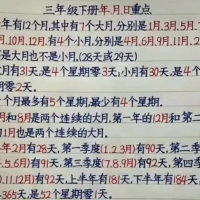 三年级下册年、月、日重点
年有12个月,其中有7个大月,分别是1月、3月、5月、7
月、10月、12月,有4个小月,分别是4月、6月、9月、11月、2
是大月也不是小月,(28天或29天)
月有31天,是4个星期零3天;小月有30天,是4个
期零2天。
个月最多有5个星期,最少有4个星期.
月和8月是两个连续的大月,第一年的12月和第二
1月也是两个连续的大月。
年2月有28天,第一季度(1.2.3月)有90天,第二季
4.5.6月)有91天,第三季度(7.8.9月)有92天,第四季
0.11.12月)有92天,上半年有181天,下半年有184天,
365天,是52个星期零1天。